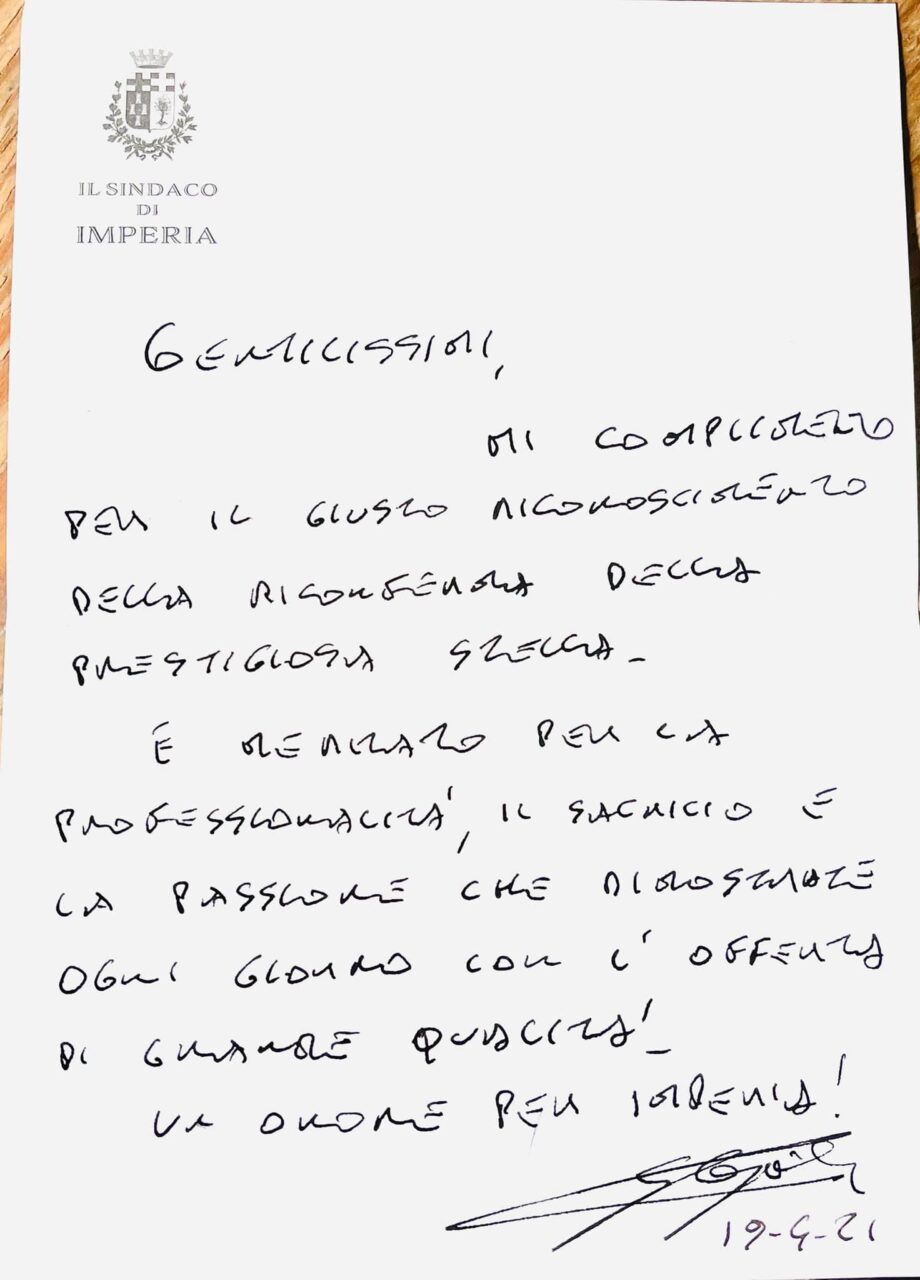 IL SINDACO
DI
IMPERIA
GENTILISSIMI,
MI COMPLIMENTO
PER IL GIUSTO RICONOSCIMENTO
DELLA RICONFERMA DELLA
PRESTIGIOSA STELLA.
È MERITATO PER LA
PROFESSIONALITÀ, IL SACRICIO E
LA PASSIONE CHE DIMOSTRATE
OGNI GIORNO CON L'OFFERTA
DI GRANDE QUALITÀ.
UN ONORE PER IMPERIA!
19-4-21